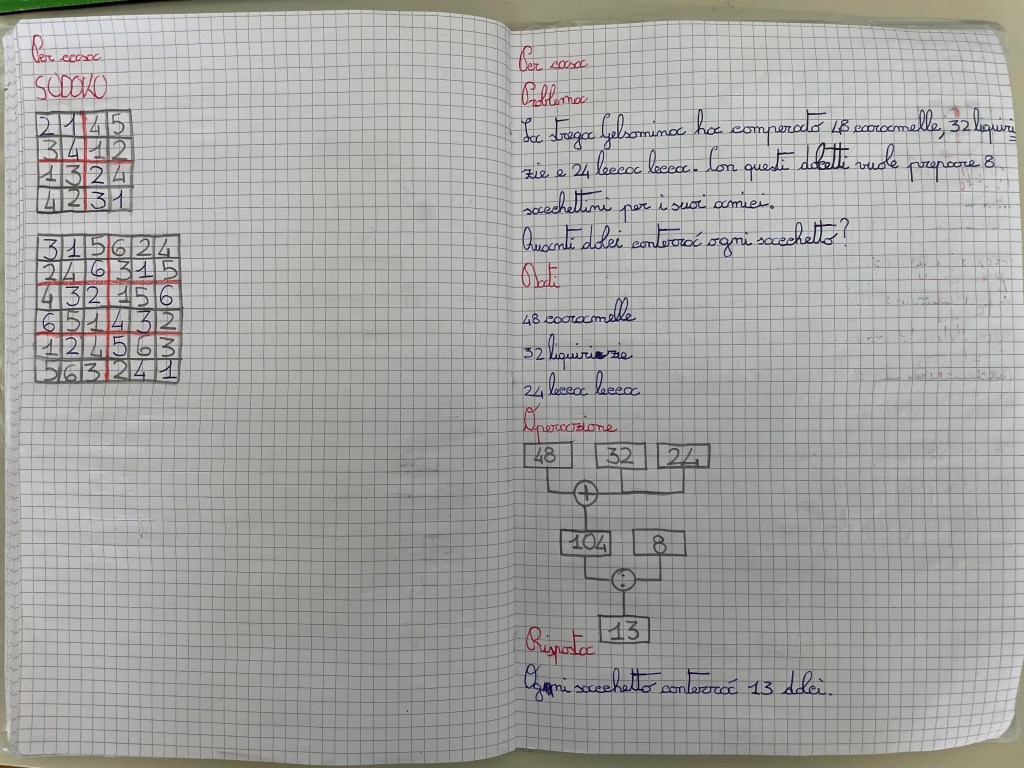 Per casa
SUDOKU
2 1 4 5
3 4 1 2
1 3 2 4
4 2 3 1
3 1 5 6 2 4
2 4 6 3 1 5
4 3 2 1 5 6
6 5 1 4 3 2
1 2 4 5 6 3
5 6 3 2 4 1
Per casa
Problema
La strega Gelsomina ha comperato 48 caramelle, 32 liquiri=
zie e 24 lecca lecca. Con questi dolcetti vuole prepare 8
sacchettini per i suoi amici.
Quanti dolci conterrà ogni sacchetto?
Dati
48 caramelle
32 liquirizie
24 lecca lecca
Operazione
48 32 24
+
104 8
:
13
Risposta
Ogni sacchetto conterrà 13 dolci.